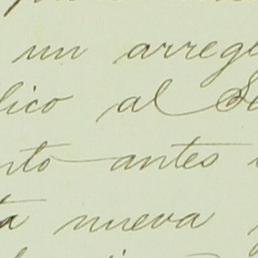 un arreg
lico al Se
nto antes
ta nueva